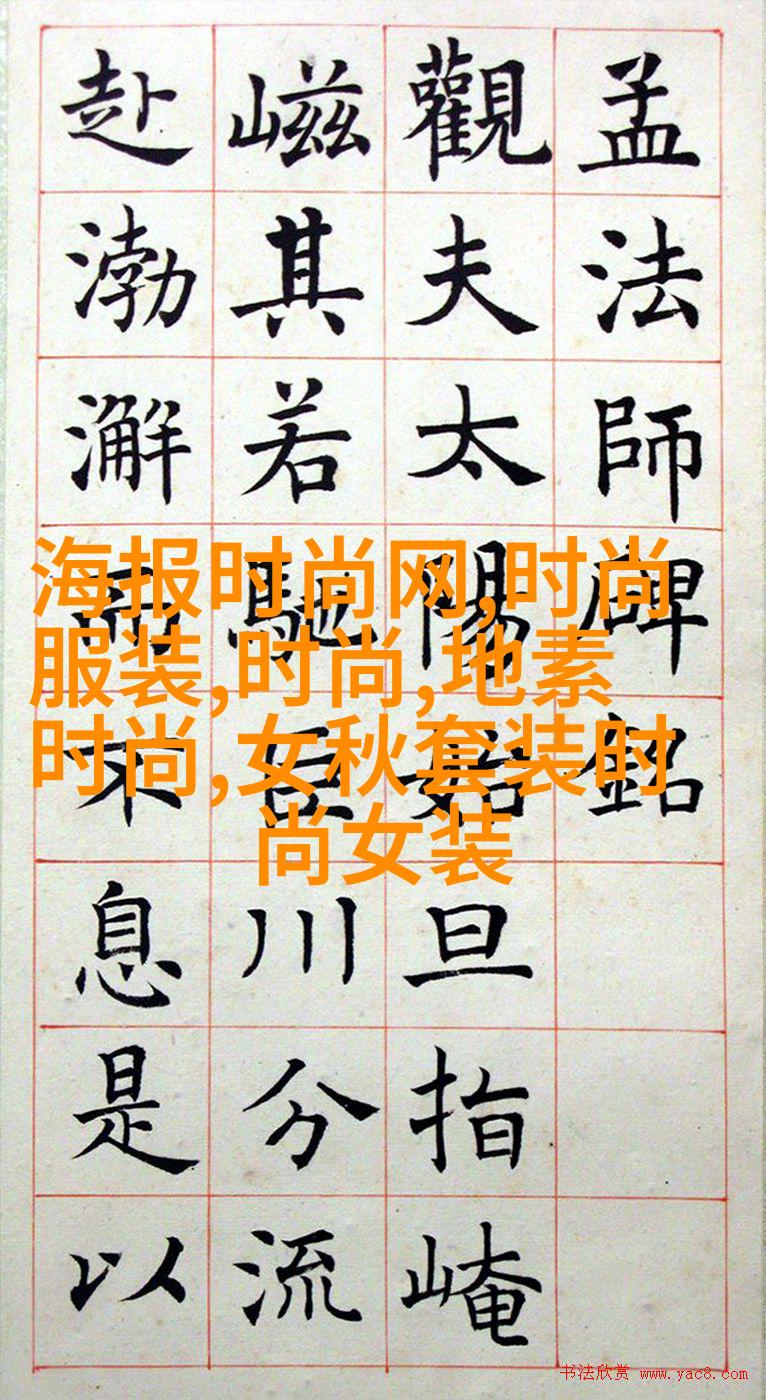 孟法師碑銘
觀夫太陽始旦指崦
嵫其若馳巨川分流
赴渤澥而不息是以
海报时尚网,时尚
服装,时尚,地素
时尚,女秋套装时
尚女装
书法欣赏 www.yac8.com